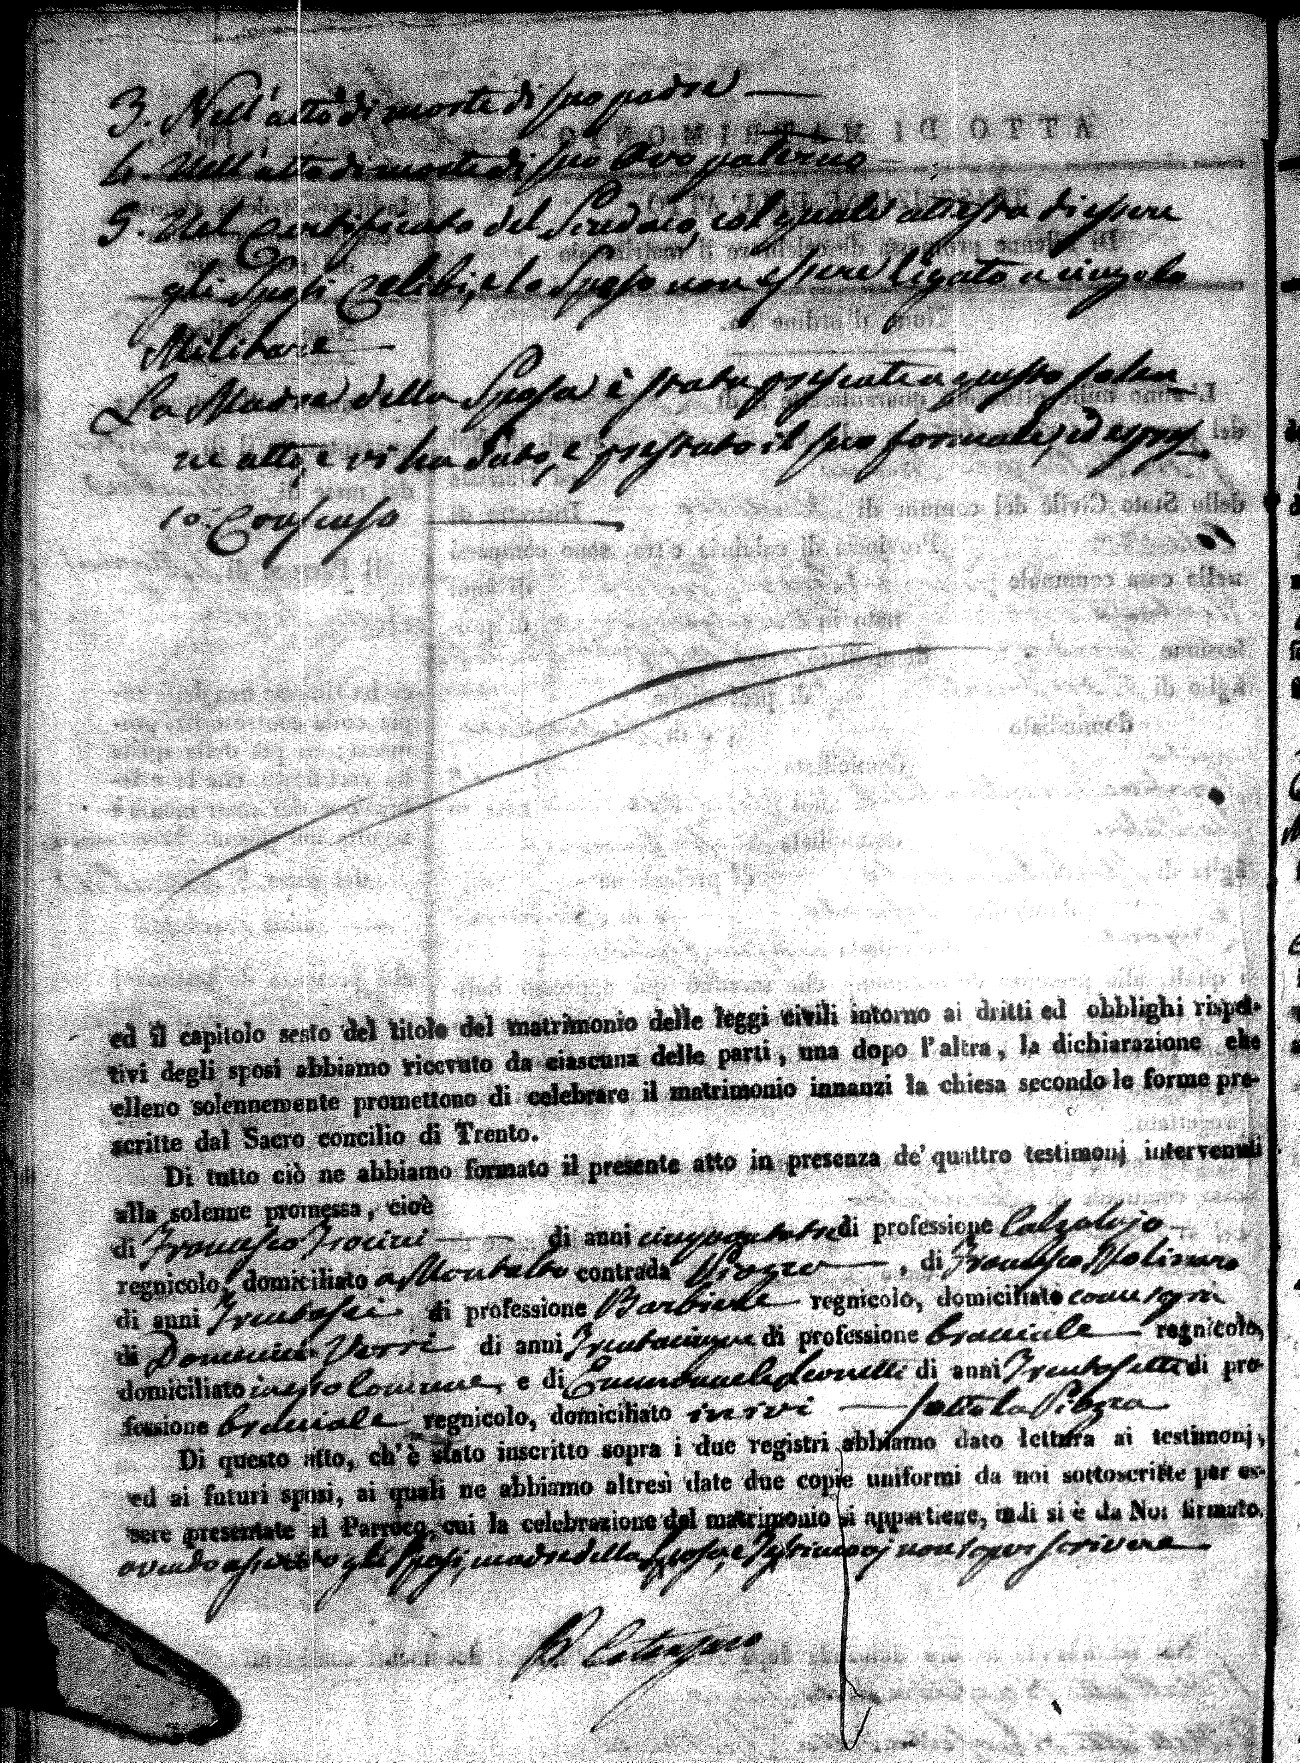 3. Nell'atto di morte di suo padre
4. Nell'atto di morte di suo Avo paterno
5. Nel Certificato del Sindaco, col quale attesta di essere
gli Sposi Celibi, e lo Sposo non essere ligato a cingolo
Militare
La Madre della Sposa è stata presente a questo solen
ne atto, e vi ha dato, e prestato il suo formale, ed espres
so Consenso
ed il capitolo sesto del titolo del matrimonio delle leggi civili intorno ai dritti ed obblighi rispet-
tivi degli sposi abbiamo ricevuto da ciascuna delle parti, una dopo l'altra, la dichiarazione che
elleno solennemente promettono di celebrare il matrimonio innanzi la chiesa secondo le forme pre-
scritte dal Sacro concilio di Trento.
Di tutto ciò ne abbiamo formato il presente atto in presenza de' quattro testimonj intervenuti
alla solenne promessa, cioè
di Francesco di anni cinquantatre di professione Calzolajo
regnicolo, domiciliato a Montalto contrada , di Francesco Molinaro
di anni Trentasei di professione Barbiere regnicolo, domiciliato come sopra
di Domenico Verri di anni Trentacinque di professione bracciale regnicolo,
domiciliato in esso Comune, e di Emmanuele Leonetti di anni Trentasette di pro-
fessione bracciale regnicolo, domiciliato in ivi sotto la Piazza
Di questo atto, ch'è stato inscritto sopra i due registri abbiamo dato lettura ai testimonj,
ed ai futuri sposi, ai quali ne abbiamo altresì date due copie uniformi da noi sottoscritte per es-
sere presentate al Parroco, cui la celebrazione del matrimonio si appartiene, indi si è da Noi firmato.
avendo asserito gli Sposi, madre della Sposa, e Testimonj non saper scrivere